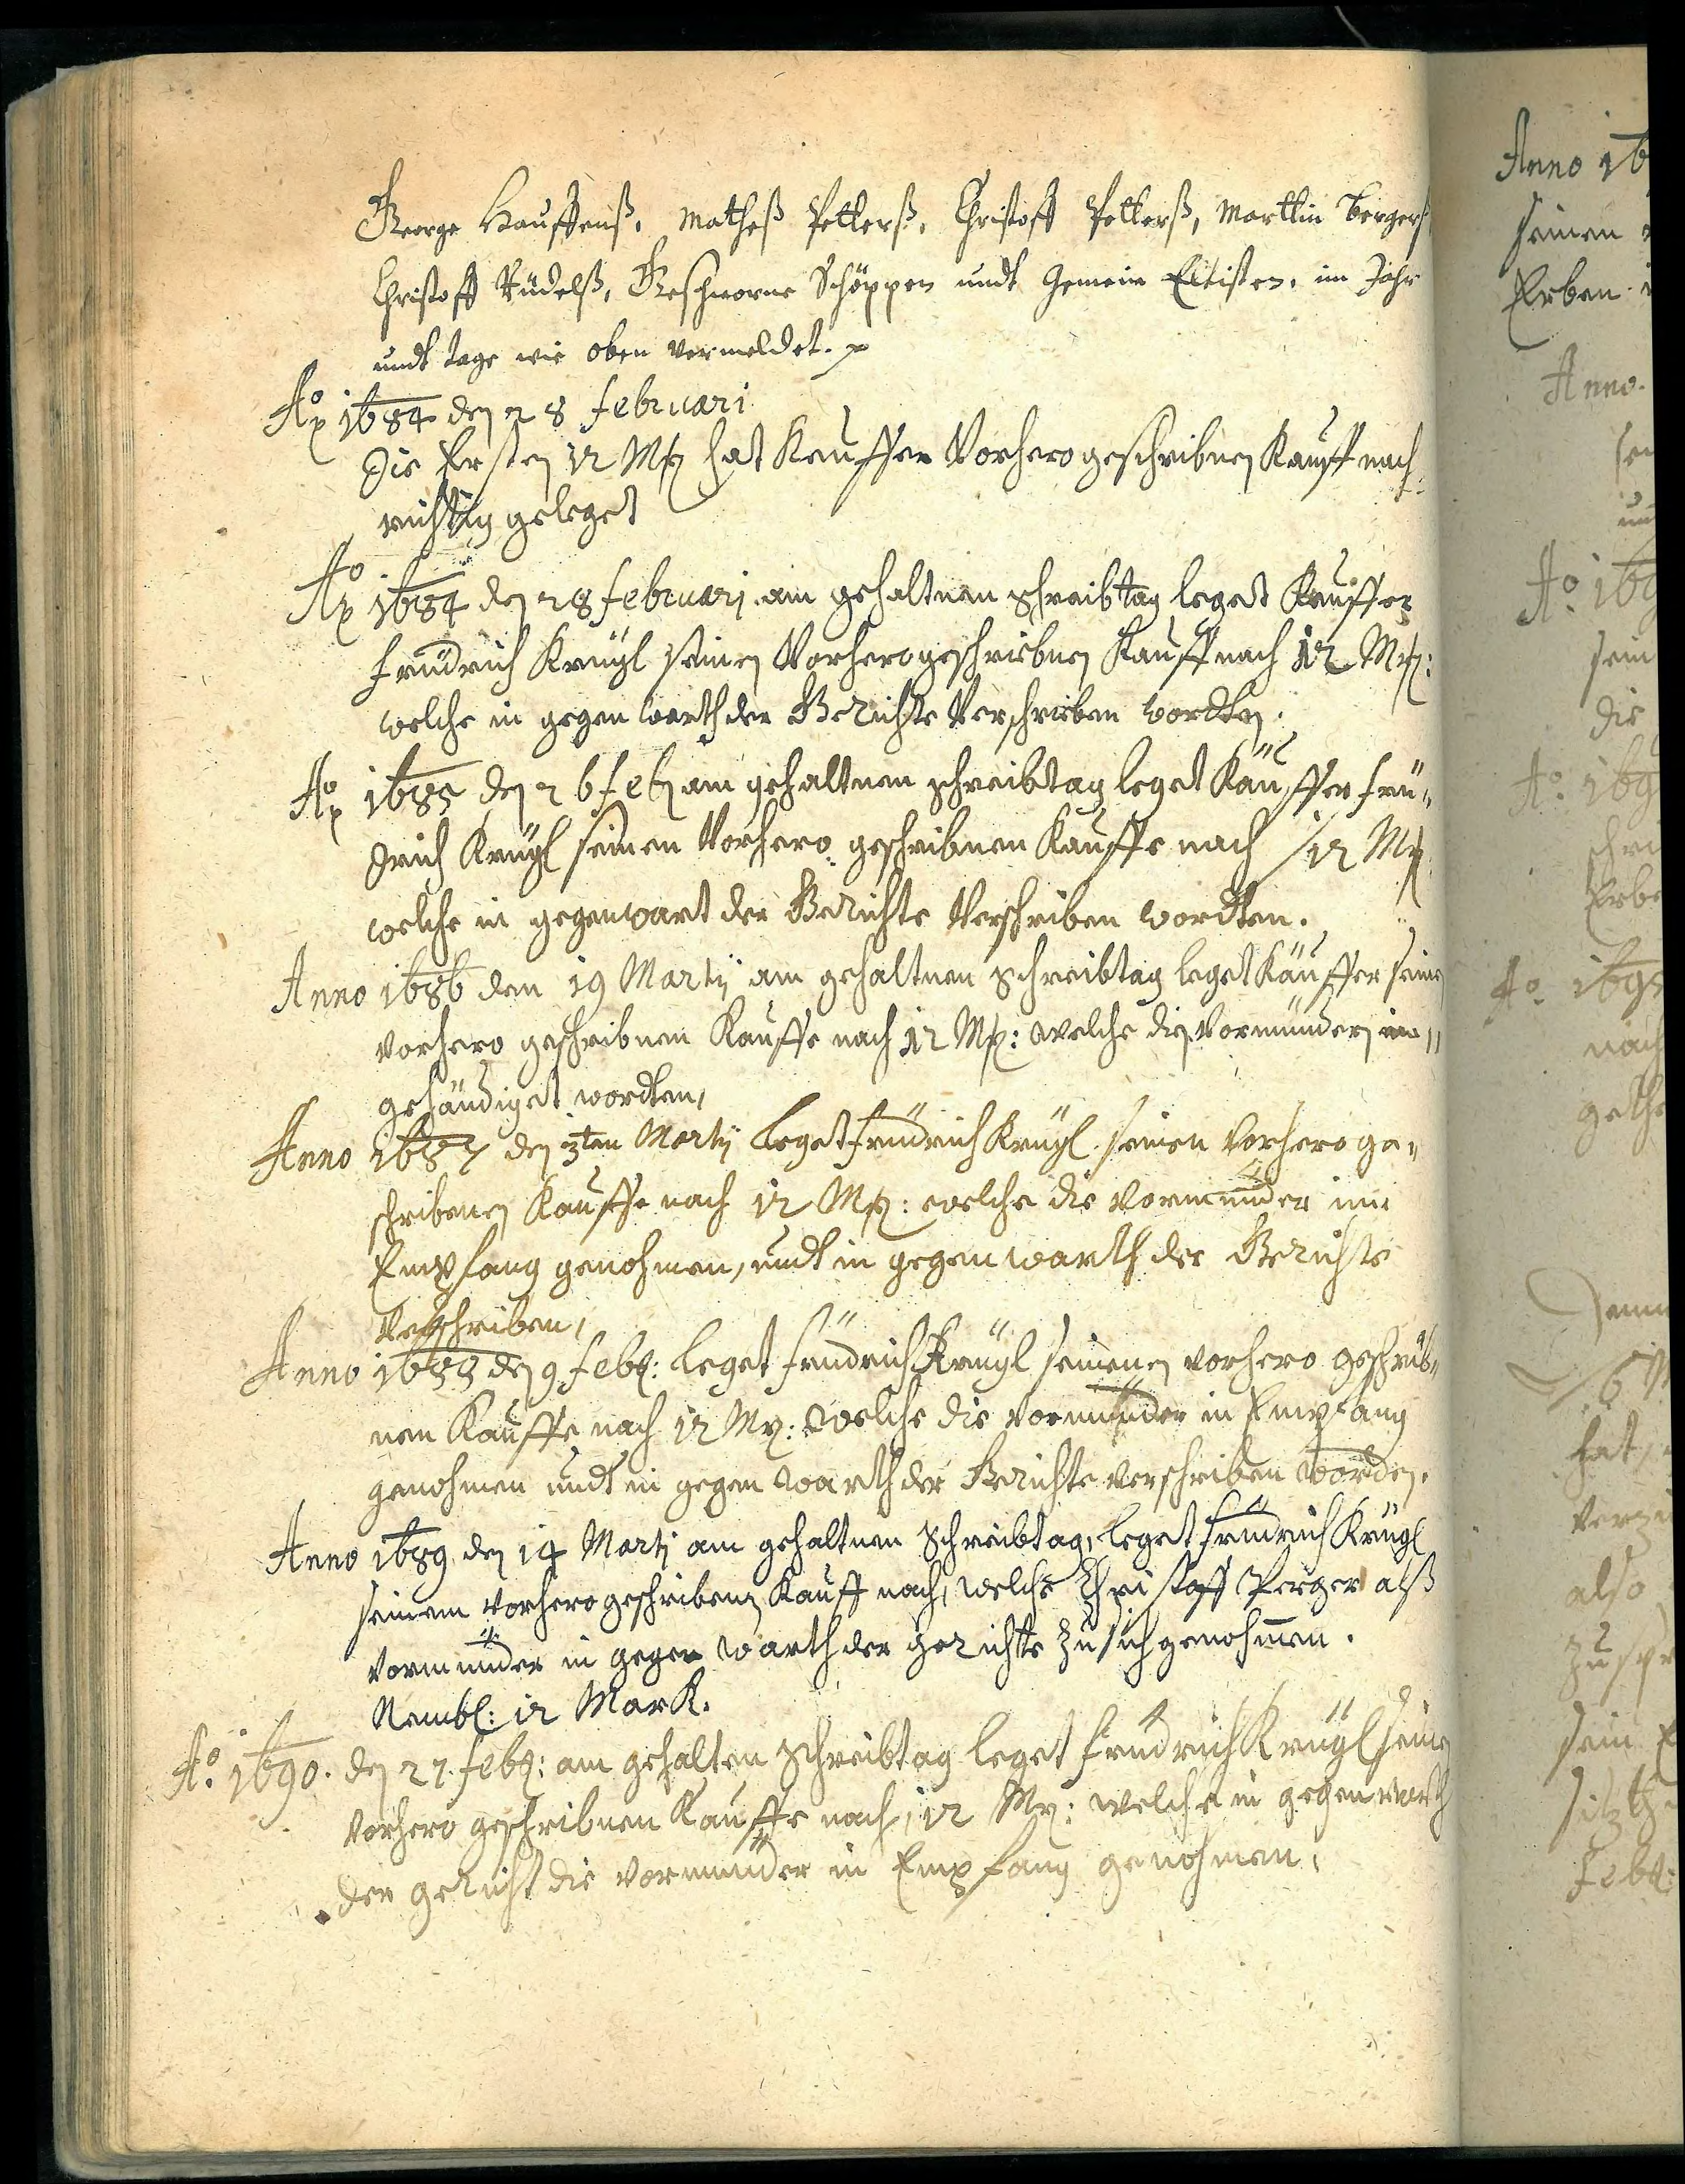 George Hauffenß, Matheß Petterß, Christoff Petterß, Marttin Bergerß
Christoff Rüdelß, Geschworne Schöppen undt Gemein Eltisten, im Jahr
undt tage wie oben vermeldet.
Ao 1684 den 28 februari
Die Ersten 12 Mk hat Kauffer Vorherogeschribnen Kauff nach
richtig geleget
Ao 1684 den 28 februari am gehaltnen schreibtag leget Kauffer
fridrich Krügl seinen Vorherogeschriebnen Kauff nach 12 Mk:
welche in gegenwarth der Gerichte Verschrieben wordten.
Ao 1685 den 26 feb am gehaltnen schreibtag leget Käuffer fri„
drich Krügl seinen Vorhero geschribnen Kauffe nach 12 Mk
welche in gegenwart der Gerichte Verschriben wordten.
Anno 1686 den 19 Martij am gehaltnen Schreibtag leget Käuffer seinen
vorhero geschribnen Kauffe nach 12 Mk: welche die Vormünder ein„
gehändiget wordten,
Anno 1687 den 3ten Martij Leget fridrich Krügl seinen Vorhero ge„
schribenen Kauffe nach 12 Mk: welche die Vormünder in
Empfang genohmen, undt in gegenwarth der Gerichte
Verschriben,
Anno 1688 den 9 feb: leget fridrich Krügl seinenen vorhero geschrib„
nen Kauffe nach 12 Mk: welche die Vormünder in Empfang
genohmen undt in gegenwarth der Gerichte verschriben worden.
Anno 1689 den 14 Martj am gehaltnen Schreibtag, leget fridrich Krügl
seinem vorhero geschribenen Kauff nach, welche Christoff Perger alß
Vormünder in gegenwarth der gerichte zu sich genohmen.
Nembl: 12 Mark.
Ao. 1690. den 27. feb: am gehalten Schreibtag leget fridrich Krügl seinen
Vorhero geschribnen Kauffe nach, 12 Mk: welche in gegenwarth
der gericht die vormünder in Empfang genohmen,
Anno 16
seinen
Erben
Anno.
Ao. 169
sein
die
Ao. 169
schri
Erbe
Ao. 1695
nach
6 M
hat,
also
zu
sein
feb: